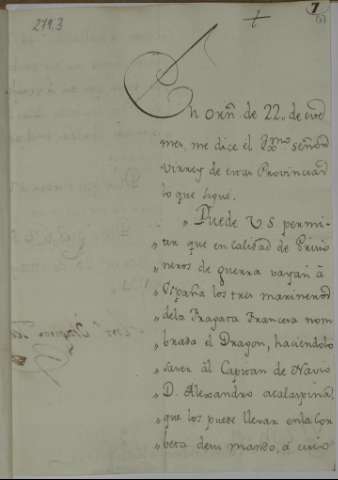 279.3
7
En orñ. de 22,, de este
mes, me dice el Exmo señor
Virrey de estas Provincias
lo que sigue.
" Puede V S. permi-
" tir que en calidad de Pricio
" neros de guerra vayan à
" España los tres marineros
" dela Fragata Francesa nom
" brada el Dragon, haciendolo
" saver ál Capitan de Navio
" D. Alexandro Malaspina,
" que los puede llevar enla Cor
" beta desu mando, á cuio